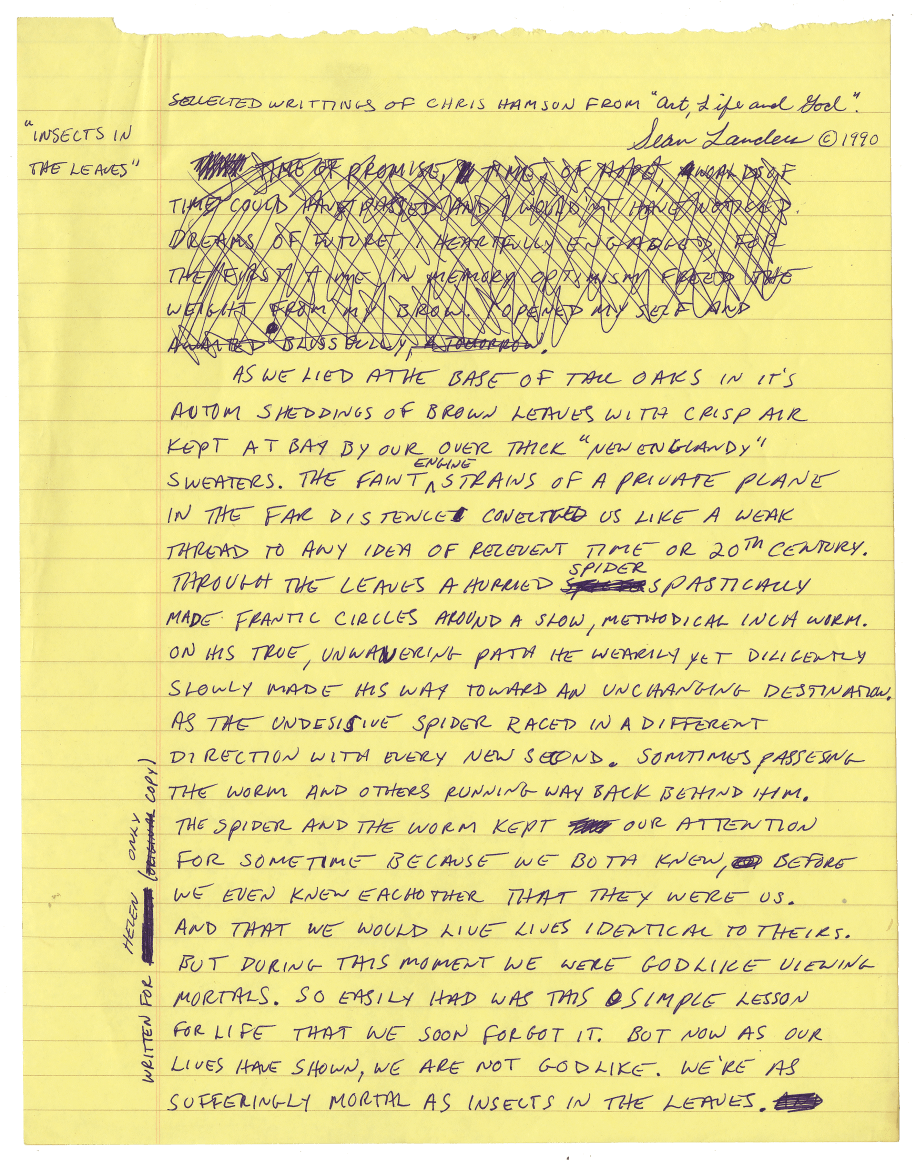 SELLECTED WRITTINGS OF CHRIS HAMSON FROM "Art, Life and God".
Sean Landers © 1990
"INSECTS IN
THE LEAVES"
TIME OF PROMISE, TIMES OF HOPE, WORLDS OF
TIME COULD HAVE PASSED AND I WOULD'NT HAVE NOTICED.
DREAMS OF FUTURE, I HEARTFULLY ENGADGED, FOR
THE FIRST TIME IN MEMORY OPTIMISM FREED THE
WEIGHT FROM MY BROW. I OPENED MY SELF AND
AWAITED BLISSFULLY, A TOMORROW.
AS WE LIED ATHE BASE OF TALL OAKS IN IT'S
AUTOM SHEDDINGS OF BROWN LEAVES WITH CRISP AIR
KEPT AT BAY BY OUR OVER THICK "NEW ENGLANDY"
SWEATERS. THE FAINT ENGINE STRAINS OF A PRIVATE PLANE
IN THE FAR DISTENCE CONECTED US LIKE A WEAK
THREAD TO ANY IDEA OF RELEVENT TIME OR 20TH CENTURY.
THROUGH THE LEAVES A HURRIED SPIDER SPASTICALLY
MADE FRANTIC CIRCLES AROUND A SLOW, METHODICAL INCH WORM.
ON HIS TRUE, UNWAVERING PATH HE WEARILY YET DILIGENTLY
SLOWLY MADE HIS WAY TOWARD AN UNCHANGING DESTINATION.
AS THE UNDESISIVE SPIDER RACED IN A DIFFERENT
DIRECTION WITH EVERY NEW SECOND. SOMTIMES PASSESING
THE WORM AND OTHERS RUNNING WAY BACK BEHIND HIM.
THE SPIDER AND THE WORM KEPT OUR ATTENTION
FOR SOMETIME BECAUSE WE BOTH KNEW, BEFORE
WE EVEN KNEW EACHOTHER THAT THEY WERE US.
AND THAT WE WOULD LIVE LIVES IDENTICAL TO THEIRS.
BUT DURING THIS MOMENT WE WERE GODLIKE VIEWING
MORTALS. SO EASILY HAD WAS THIS SIMPLE LESSON
FOR LIFE THAT WE SOON FORGOT IT. BUT NOW AS OUR
LIVES HAVE SHOWN, WE ARE NOT GODLIKE. WE'RE AS
SUFFERINGLY MORTAL AS INSECTS IN THE LEAVES.
WRITTEN FOR HELEN (ORIGINAL ONLY COPY)